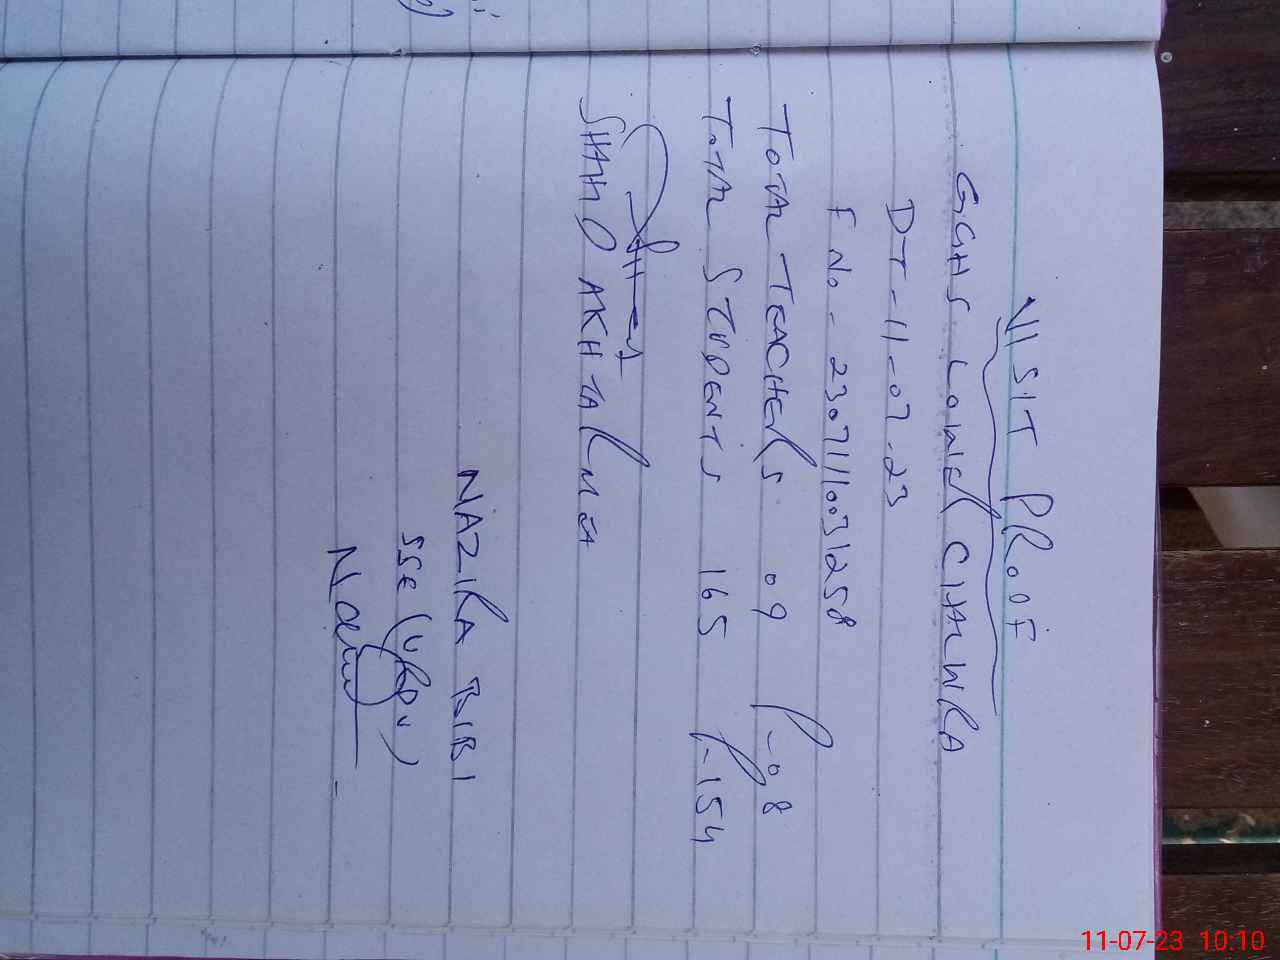 VISIT PROOF
GGHS LOWER CHAWRA
DT-11-07-23
F No- 23071110031258
TOTAL TEACHERS 09 P-08
TOTAL STUDENTS 165 P-154
SHAHO AKHTAR
NAZIRA BIBI
SSE (URDU)
11-07-23 10:10